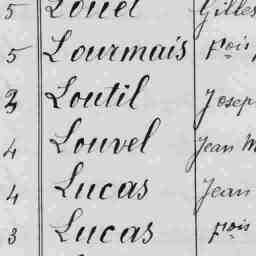 5 Louel Gilles
5 Lourmais fois
3 Loutil Josep
4 Louvel Jean M
4 Lucas Jean
3 Lucas fois